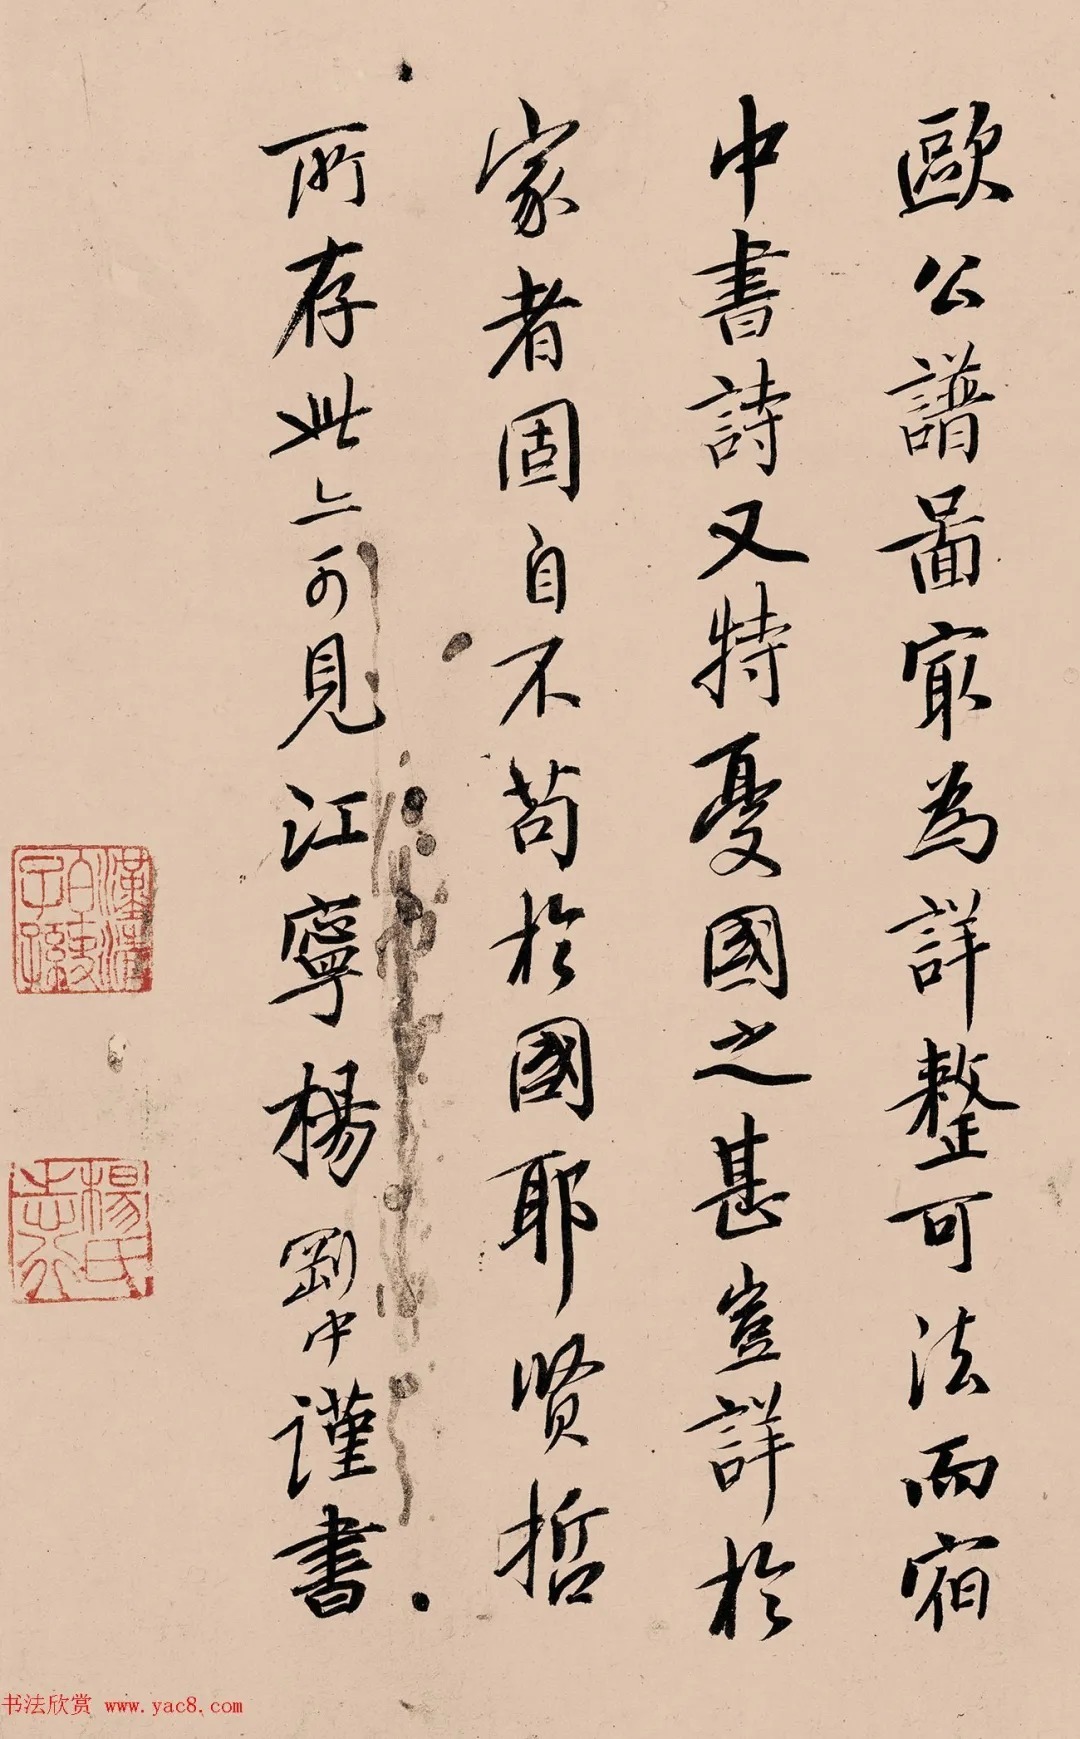 歐公譜圖宷為詳整可法而宿
中書詩又特憂國之甚豈詳於
家者固自不苟於國耶賢哲
所存此亦可見江寧楊剛中謹書
漢清白吏子孫
楊氏志行
书法欣赏 www.yac8.com